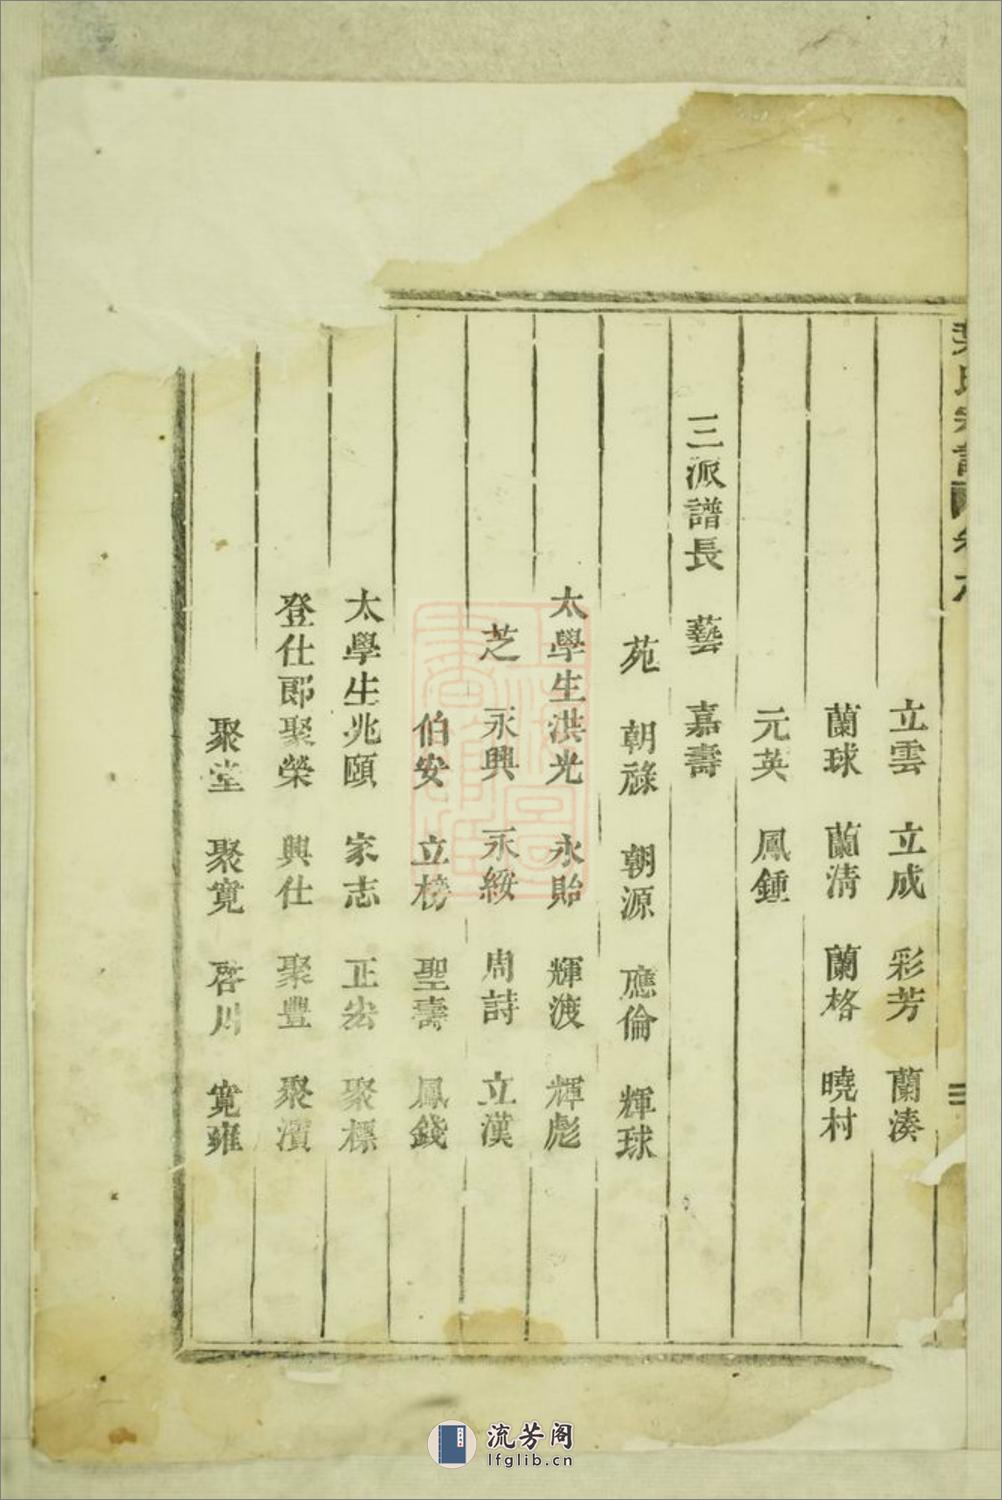 立雲 立成 彩芳 蘭湊
蘭球 蘭清 蘭格 曉村
元英 鳳鍾
三派譜長 藝 嘉壽
苑 朝祿 朝源 應倫 輝球
太學生洪光 永貽 輝渡 輝彪
芝 永興 永綏 周詩 立漢
伯安 立榜 聖壽 鳳錢
太學生兆頤 家志 正宏 聚標
登仕郎聚榮 興仕 聚豐 聚濱
聚堂 聚寬 啓川 寬雍
流芳阁
lfglib.cn